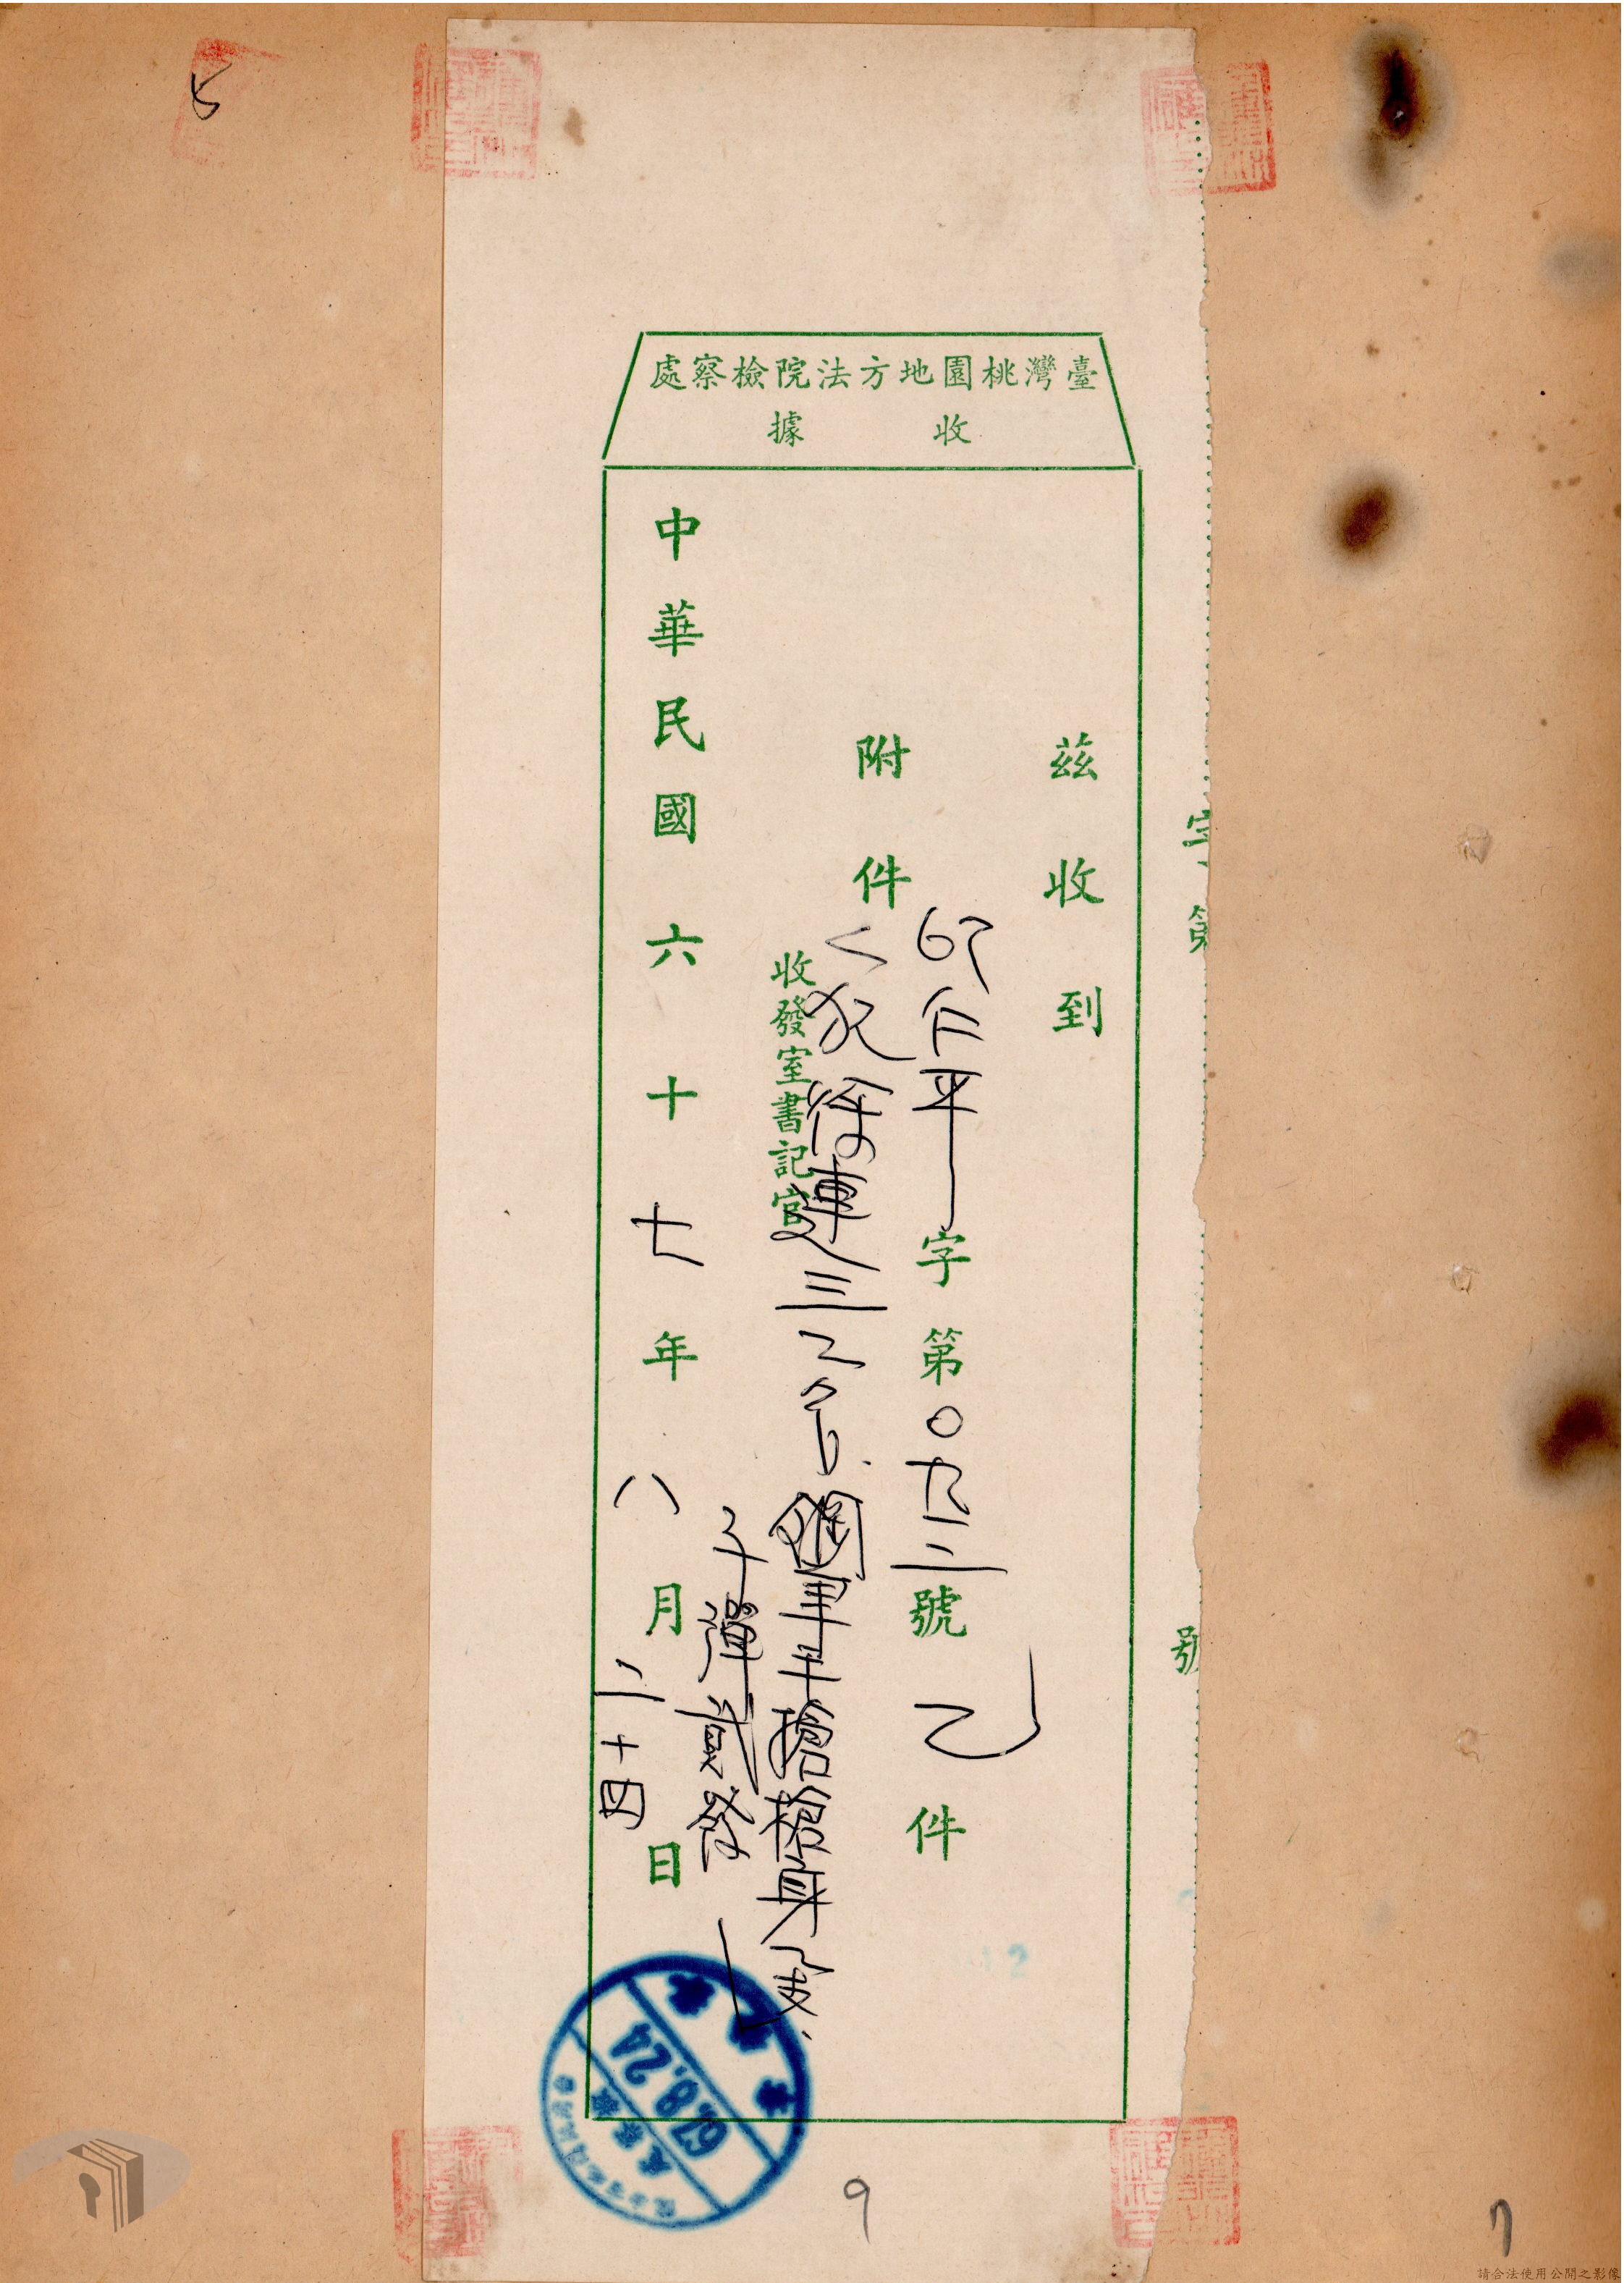 臺灣桃園地方法院檢察處
收據
字第 號
茲收到
67仁平字第〇九三號乙件
附件
人犯徐連三乙名.鋼筆手槍槍身乙支.
子彈貳發
收發室書記官
中華民國六十七年八月二十四日
67.8.24
9
7
請合法使用公開之影像